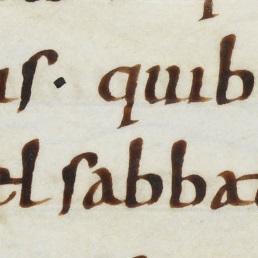 us. quib
el sabbat